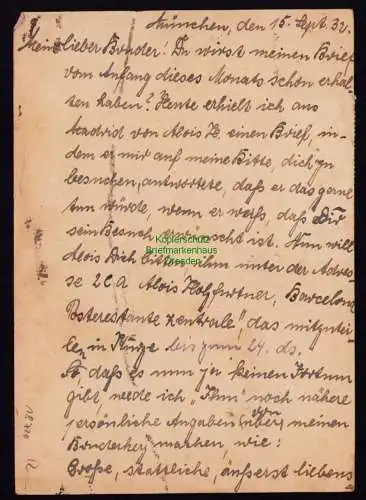 München, den 15. Sept. 32.
Mein lieber Bruder! Du wirst meinen Brief
vom Anfang dieses Monats schon erhal-
ten haben? Heute erhielt ich aus
Madrid von Alois H. einen Brief, in-
dem er mir auf meine Bitte, dich zu
besuchen, antwortete, daß er das gerne
tun würde, wenn er weiß, daß Dir
sein Besuch erwünscht ist. Nun will
Alois Dich bitten, ihm unter der Adres-
se Alois Holzfurtner, Barcelona
Posterestante Zentrale" das mitzutei-
len in Kürze bis zum 24. ds.
daß es nun ja keinen Irrtum
gibt, werde ich „Ihm" noch nähere
persönliche Angaben über meinen
Bruderherz machen wie:
Große, stattliche, äußerst liebens
Kopierschutz
Briefmarkenhaus
Dresden